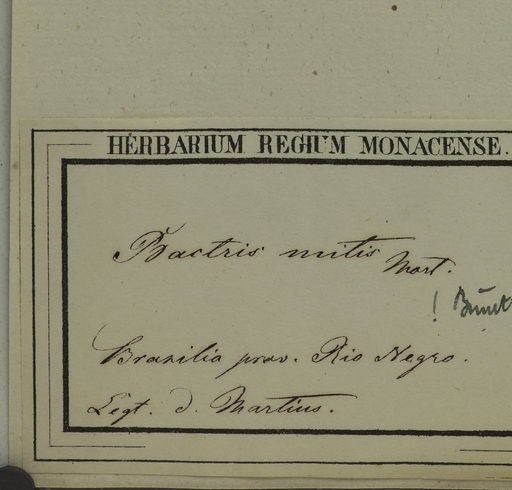 HERBARIUM REGIUM MONACENSE.
Bactris mitis Mart.
! Burret
Brazilia prov. Rio Negro.
Legt. d. Martius.